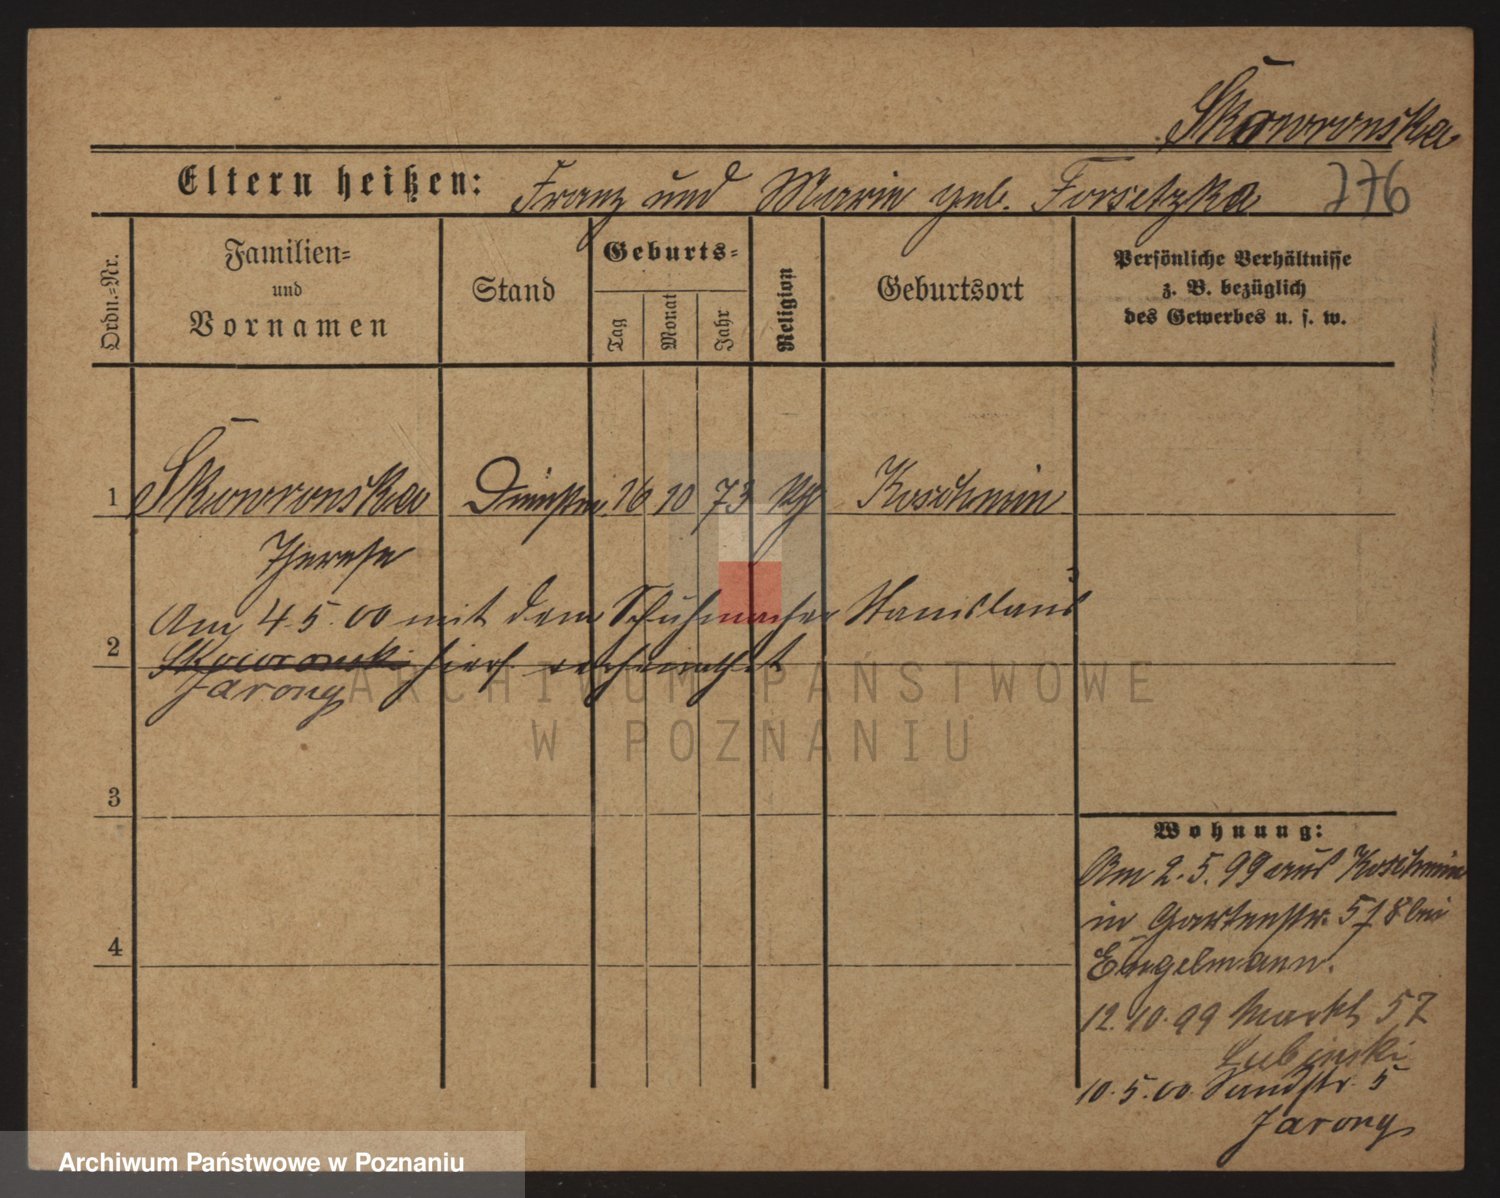 Skowronska
Eltern heißen: Franz und Marie geb. Forsetzka 276
Ordn.-Nr.
Familien-
und
Vornamen
Stand
Geburts-
Tag
Monat
Jahr
Religion
Geburtsort
Persönliche Verhältnisse
z. B. bezüglich
des Gewerbes u. s. w.
1 Skowronska 16 10 73 Koschmin
Therese
Am 4.5.00 mit dem Schuhmacher Stanislaus
2 Skowronski hies. verheirathet
Jarong
3
4
Wohnung:
Am 2.5.99 aus Koschmin
in Gartenstr. 578 bei
Engelmann.
12.10.99 Markt 57
Lubinski
10.5.00. Sandstr. 5
Jarong
ARCHIWUM PAŃSTWOWE
W POZNANIU
Archiwum Państwowe w Poznaniu